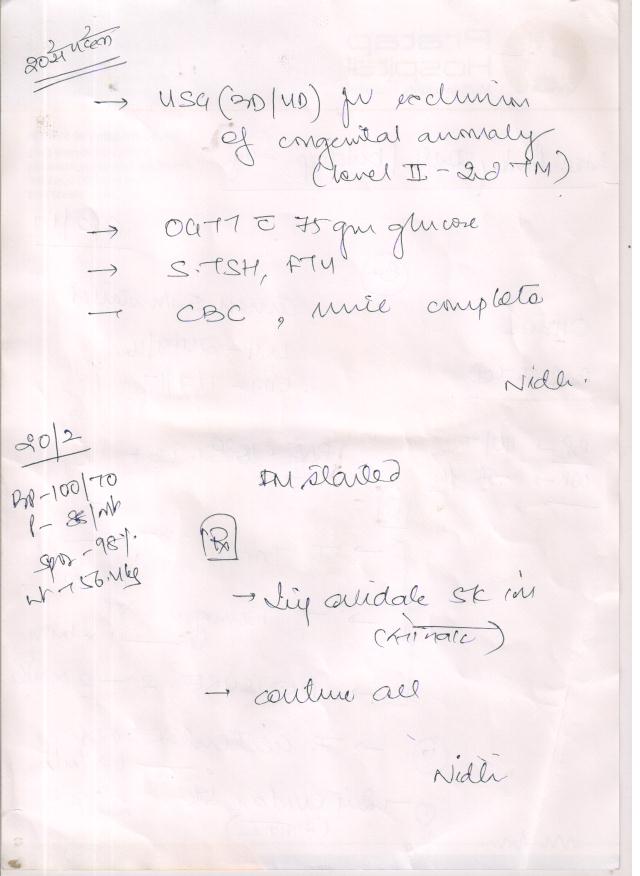 → USG (3D/4D) for exclusion
of congenital anomaly
(level II - 2nd TM)
→ OGTT c̄ 75 gm glucose
→ S. TSH, FT4
— CBC, urine complete
Nidhi.
20/2
BP - 100/70
P - /mt
SpO2 - 98%
wt → 56.4kg
started
Rx
→ Inj 5K im
→ continue all
Nidhi